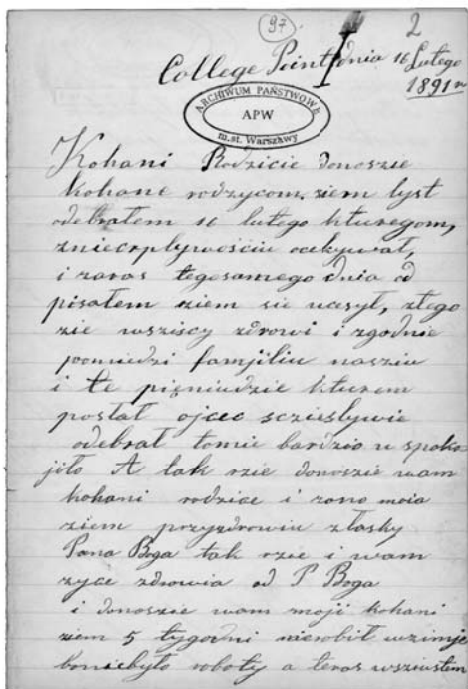 97
2
College Point dnia 16 Lutego
1891 r
ARCHIWUM PAŃSTWOWE
APW
m.st. Warszawy
Kohani Rodzicie donoszie
kohane rodzycom, ziem lyst
odebrałem 16 lutego kturegom,
zniecrplywościu ocekywał,
i zaras tegosamego dnia od
pisałem ziem sie ucsył, złego
zie wsziscy zdrowi i zgodnie
pomiedzi familiu nasziu
i te pieniudzie kturem
posłał ojcec scziesływie
odebrał tomie bardzio uspoko-
jiło A tak rzie donoszie wam
kohani rodzice i zono moia
ziem przyzdrowiu złasky
Pana Boga tak rzie i wam
zyce zdrowia od P Boga
i donoszie wam moji kohani
ziem 5 tygodni nierobił wzimje
boniebyło roboty a teras wsziustem